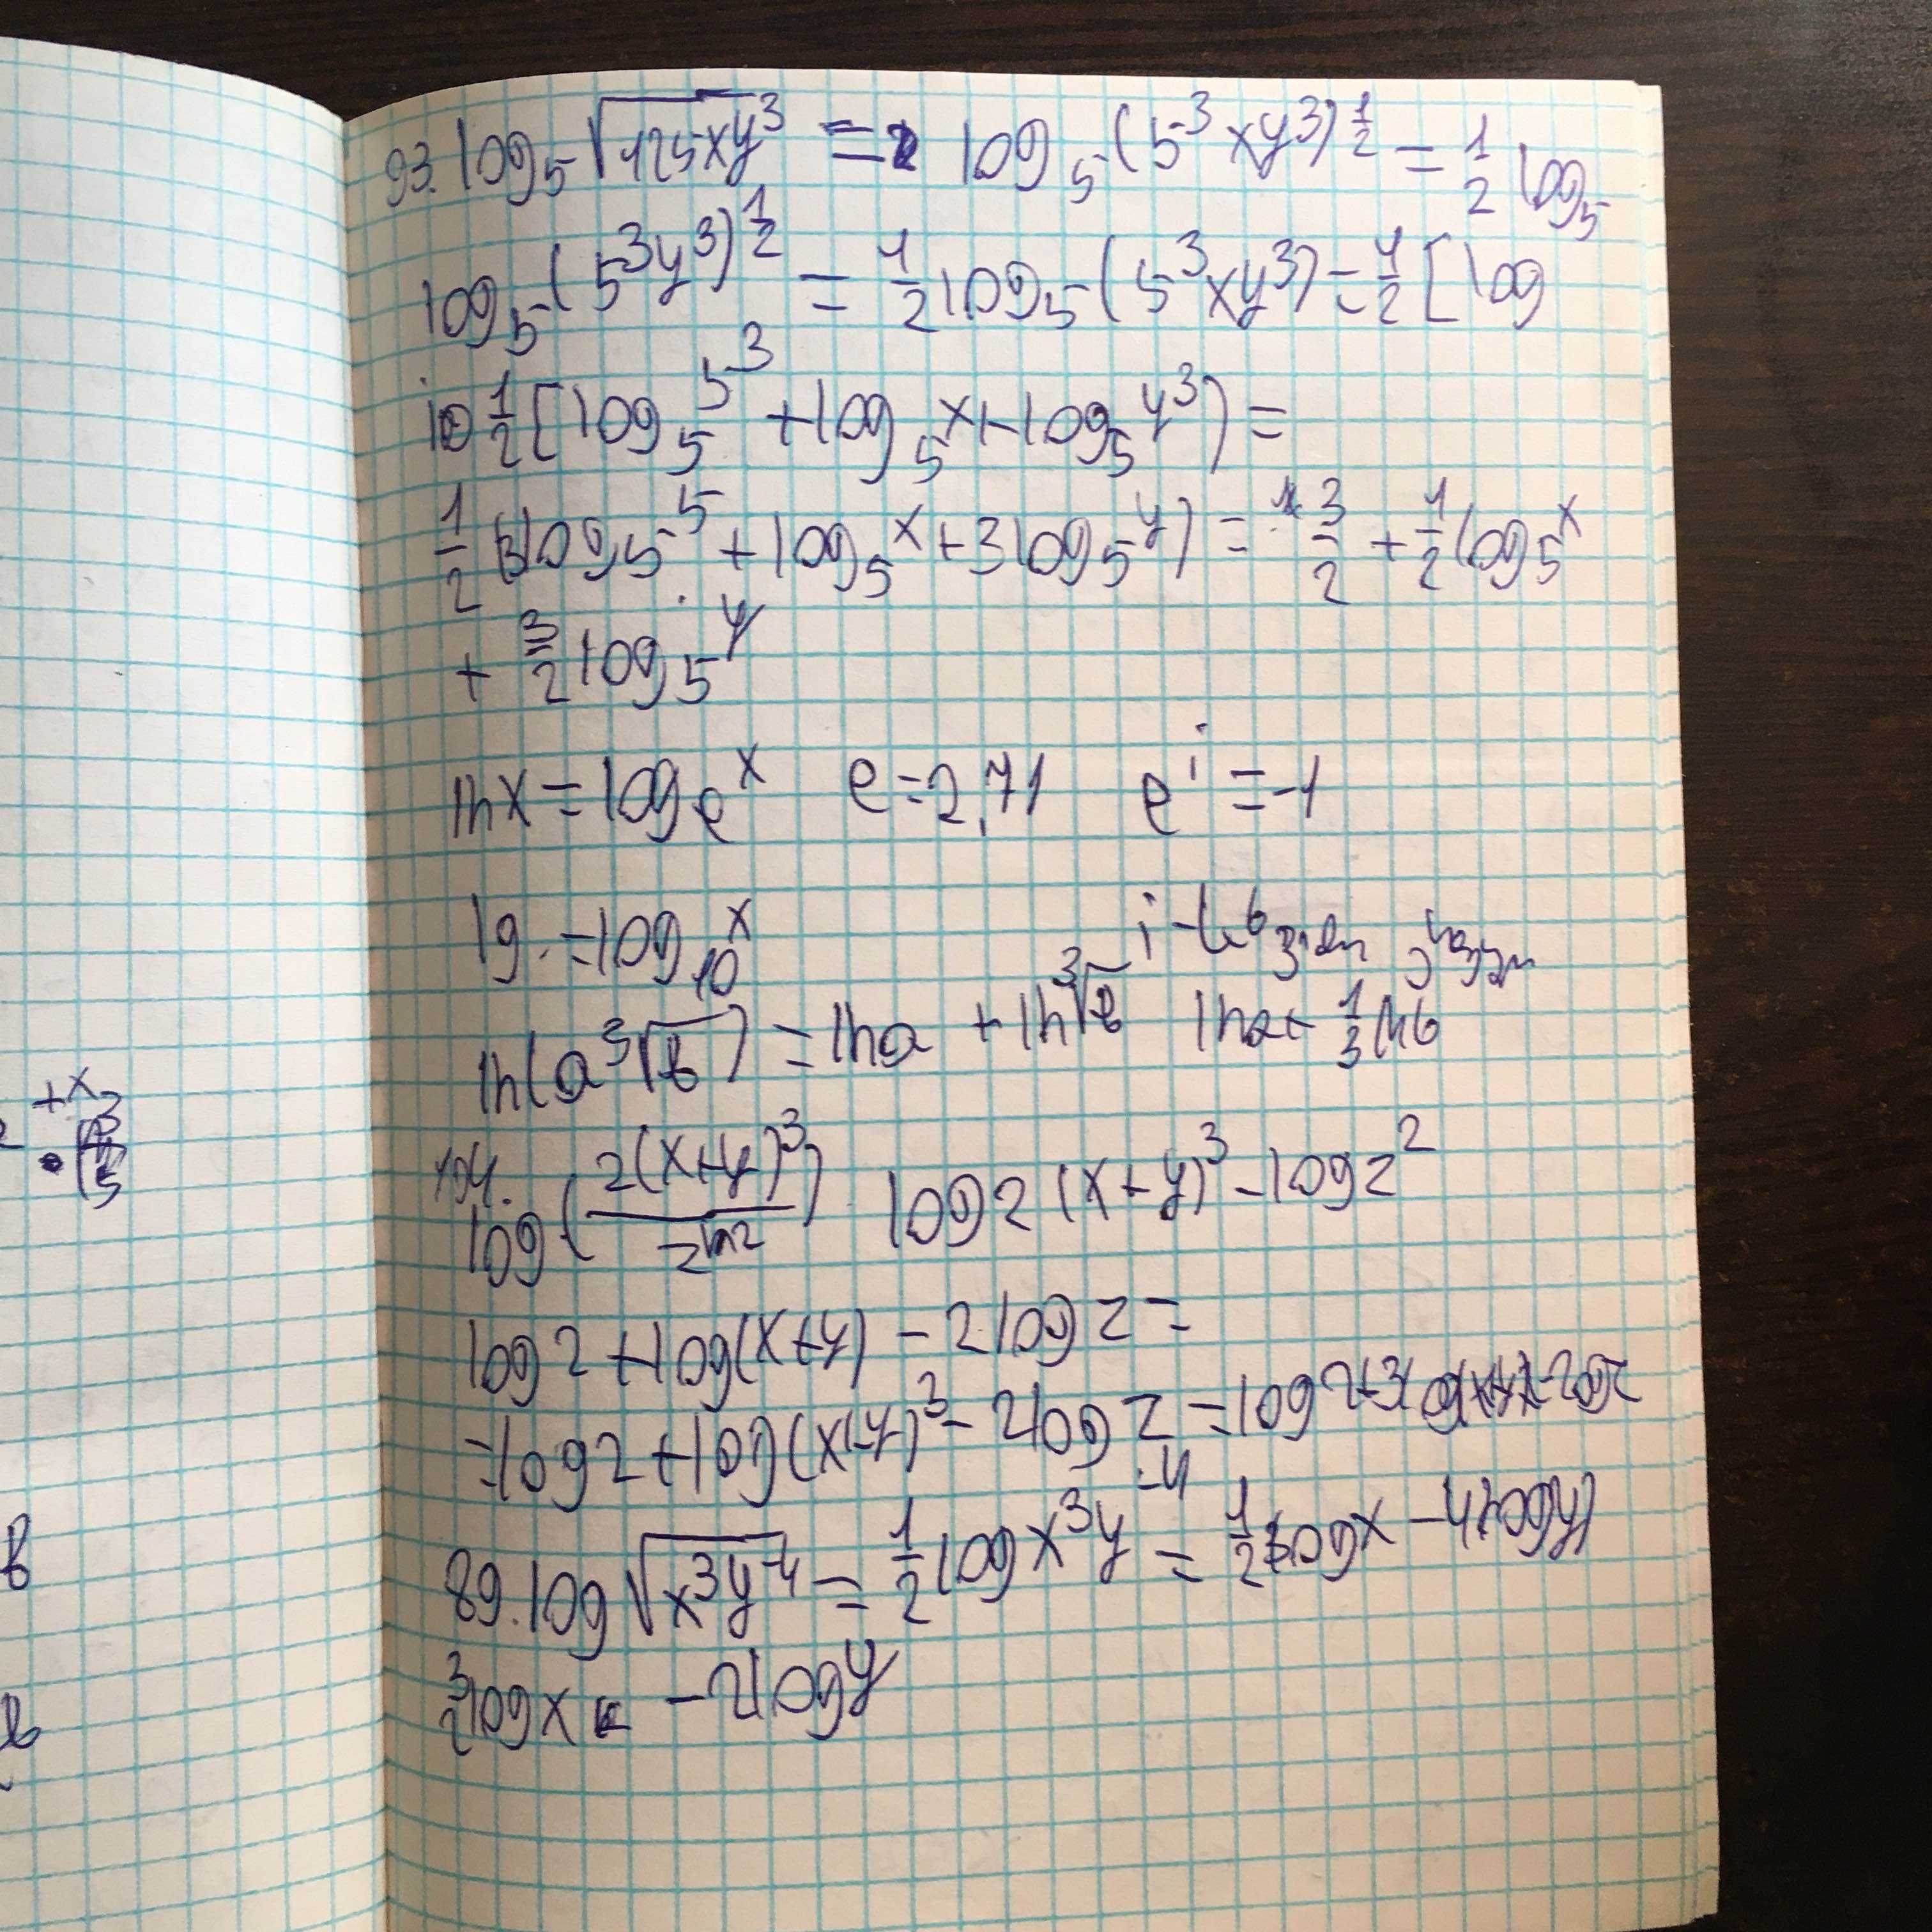 93. log₅√125xy³ = log₅(5³xy³)^½ = ½ log₅
log₅(5³y³)^½ = ½log₅(5³xy³) = ½[log
½[log₅5³ + log₅x + log₅y³) =
½(3log₅5 + log₅x + 3log₅y) = 3/2 + ½log₅x
+ 3/2 log₅y
lnx = logₑx e = 2,71 eⁱ = -1
lg. = log₁₀x
i -
ln(a³√b) = lna + ln³√b lna + ⅓lnb
104.
log(2(x+y)³/z²) log2(x+y)³ - logz²
log2 + log(x+y) - 2logz =
= log2 + log(x+y)³ - 2logz = log2 + 3log
89. log√x³y⁻⁴ = ½logx³y⁻⁴ = ½3logx - 4
3/2logx - 2logy
+x
в
в